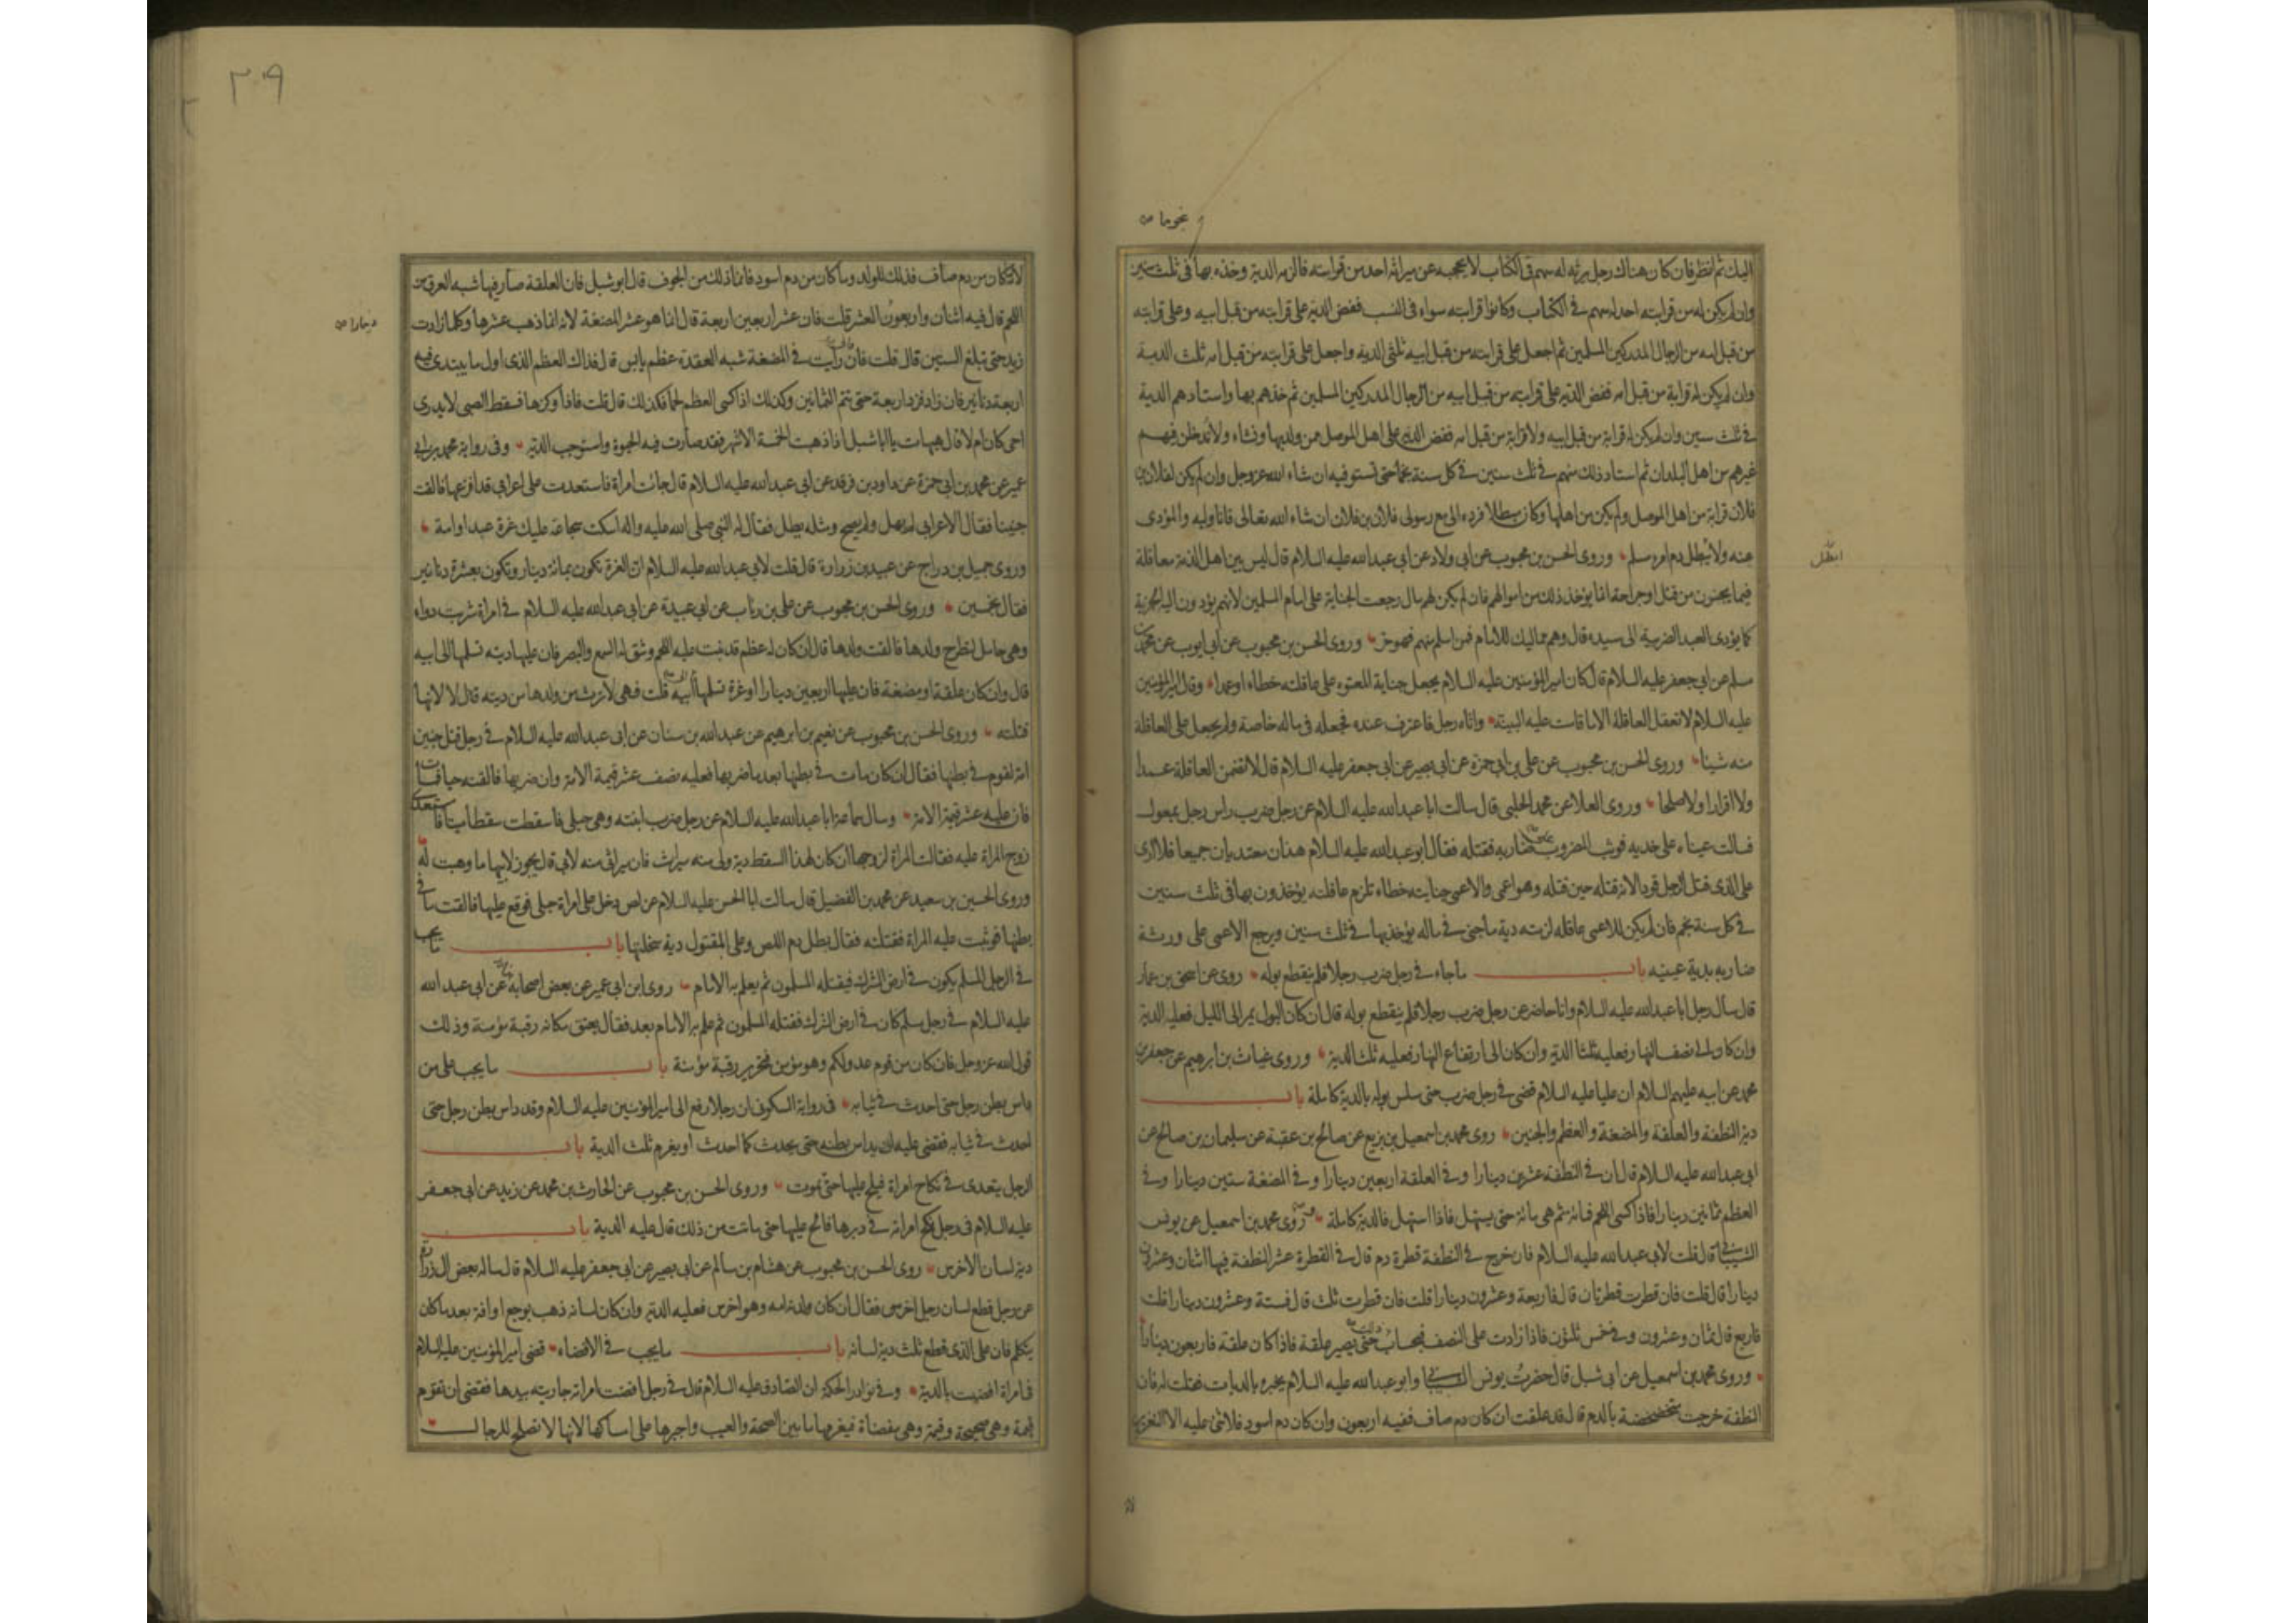 نجوما ص
اليك ثم انظر فان كان هناك رجل يرثه له سهم فى الكتاب لا يحجبه عن ميراثه احد من قرابته فالزمه الدية وخذه بها فى ثلث سنين
وان لم يكن له من قرابته احد له سهم فى الكتاب وكانوا قرابته سواء فى النسب ففض الدية على قرابته من قبل ابيه وعلى قرابته
من قبل امه من الرجال المدركين المسلمين ثم اجعل على قرابته من قبل ابيه ثلثى الدية واجعل على قرابته من قبل امه ثلث الدية
وان لم يكن له قرابة من قبل امه ففض الدية على قرابته من قبل ابيه من الرجال المدركين المسلمين ثم خذهم بها واستادهم الدية
فى ثلث سنين وان لم يكن له قرابة من قبل ابيه ولا قرابة من قبل امه ففض الدية على اهل الموصل ممن ولد بها ونشاء ولا تدخلن فيهم
غيرهم من اهل البلدان ثم استاد ذلك منهم فى ثلث سنين فى كل سنة نجما حتى تستوفيه ان شاء الله عز وجل وان لم يكن لفلان بن
فلان قرابة من اهل الموصل ولم يكن من اهلها وكان مبطلا فرده الى مع رسولى فلان بن فلان ان شاء الله تعالى فانا وليه والمؤدى
عنه ولا يبطل دم امرء مسلم وروى الحسن بن محبوب عن ابى ولاد عن ابى عبد الله عليه السلام قال ليس بين اهل الذمة معاقلة
فيما يجنون من قتل او جراحة انما يؤخذ ذلك من اموالهم فان لم يكن لهم مال رجعت الجناية على امام المسلمين لانهم يؤدون اليه الجزية
كما يؤدى العبد الضريبة الى سيده قال وهم مماليك للامام فمن اسلم منهم فهو حر وروى الحسن بن محبوب عن ابى ايوب عن محمد بن
مسلم عن ابى جعفر عليه السلام قال كان امير المؤمنين عليه السلام يجعل جناية المعتوه على عاقلته خطاء او عمدا وقال امير المؤمنين
عليه السلام لا تعقل العاقلة الا ما قامت عليه البينة واتاه رجل فاعترف عنده فجعله فى ماله خاصة ولم يجعل على العاقلة
منه شيئا وروى الحسن بن محبوب عن على بن ابى حمزة عن ابى بصير عن ابى جعفر عليه السلام قال لا تضمن العاقلة عمدا
ولا اقرارا ولا صلحا وروى العلا عن محمد الحلبى قال سالت ابا عبد الله عليه السلام عن رجل ضرب راس رجل بمعول
فسالت عيناه على خديه فوثب المضروب على ضاربه فقتله فقال ابو عبد الله عليه السلام هذان معتديان جميعا فلا ارى
على الذى قتل الرجل قودا لانه قتله حين قتله وهو اعمى والاعمى جنايته خطاء تلزم عاقلته يؤخذون بها فى ثلث سنين
فى كل سنة نجم فان لم يكن للاعمى عاقلة لزمته دية ما جنى فى ماله يؤخذ بها فى ثلث سنين ويرجع الاعمى على ورثة
ضاربه بدية عينيه باب ما جاء فى رجل ضرب رجلا فلم ينقطع بوله روى عن اسحق بن عمار
قال سأل رجل ابا عبد الله عليه السلام وانا حاضر عن رجل ضرب رجلا فلم ينقطع بوله قال ان كان البول يمر الى الليل فعليه الدية
وان كان الى نصف النهار فعليه ثلثا الدية وان كان الى ارتفاع النهار فعليه ثلث الدية وروى غياث بن ابرهيم عن جعفر بن
محمد عن ابيه عليهم السلام ان عليا عليه السلام قضى فى رجل ضرب حتى سلس بوله بالدية كاملة باب
دية النطفة والعلقة والمضغة والعظم والجنين روى محمد بن اسمعيل بن بزيع عن صالح بن عقبة عن سليمان بن صالح عن
ابى عبد الله عليه السلام قال ان فى النطفة عشرين دينارا وفى العلقة اربعين دينارا وفى المضغة ستين دينارا وفى
العظم ثمانين دينارا فاذا كسى اللحم فمائة ثم هى مائة حتى يستهل فاذا استهل فالدية كاملة روى محمد بن اسمعيل عن يونس
الشيبانى قال قلت لابى عبد الله عليه السلام فان خرج فى النطفة قطرة دم قال فى القطرة عشر النطفة فيها اثنان وعشرون
دينارا قال قلت فان قطرت قطرتان قال فاربعة وعشرون دينارا قلت فان قطرت ثلث قال فستة وعشرون دينارا قلت
فاربع قال ثمان وعشرون وفى خمس ثلثون فاذا زادت على النصف فبحساب ذلك حتى يصير علقة فاذا كان علقة فاربعون دينارا
وروى محمد بن اسمعيل عن ابى شبل قال حضرت يونس الشيبانى وابو عبد الله عليه السلام يخبره بالديات فقلت له فان
النطفة خرجت متخضخضة بالدم قال قد علقت ان كان دم صاف ففيه اربعون وان كان دم اسود فلا شئ عليه الا التعزير
لانه
ابطل
٣٠٩
لانه ما كان من دم صاف فذلك للولد وما كان من دم اسود فانما ذلك من الجوف قال ابو شبل فان العلقة صار فيها شبه العرق من
اللحم قال فيه اثنان واربعون العشر قلت فان عشر اربعين اربعة قال انما هو عشر المضغة لانه انما ذهب عشرها وكلما زادت
زيد حتى تبلغ الستين قال قلت فان رأيت فى المضغة شبه العقدة عظم يابس قال فذاك العظم الذى اول ما يبتدى ففيه
اربعة دنانير فان زاد فزد اربعة حتى يتم الثمانين وكذلك اذا كسى العظم لحما فكذلك قال قلت فاذا وكزها فسقط الصبى لا يدرى
احى كان ام لا قال هيهات يا ابا شبل اذا ذهبت الخمسة الاشهر فقد صارت فيه الحيوة واستوجب الدية وفى رواية محمد بن ابى
عمير عن محمد بن ابى حمزة عن داود بن فرقد عن ابى عبد الله عليه السلام قال جائت امرأة فاستعدت على اعرابى قد افزعها فالقت
جنينا فقال الاعرابى لم يهل ولم يصح ومثله يطل فقال له النبى صلى الله عليه واله اسكت سجاعة عليك غرة عبد او امة
وروى جميل بن دراج عن عبيد بن زرارة قال قلت لابى عبد الله عليه السلام ان الغرة تكون بمائة دينار وتكون بعشرة دنانير
فقال بخمسين وروى الحسن بن محبوب عن على بن رئاب عن ابى عبيدة عن ابى عبد الله عليه السلام فى امرأة شربت دواء
وهى حامل لتطرح ولدها فالقت ولدها قال ان كان له عظم قد نبت عليه اللحم وشق له السمع والبصر فان عليها ديته تسلمها الى ابيه
قال وان كان علقة او مضغة فان عليها اربعين دينارا او غرة تسلمها الى ابيه قلت فهى لا ترث من ولدها من ديته قال لا لانها
قتلته وروى الحسن بن محبوب عن نعيم بن ابرهيم عن عبد الله بن سنان عن ابى عبد الله عليه السلام فى رجل قتل جنين
امة لقوم فى بطنها فقال ان كان مات فى بطنها بعد ما ضربها فعليه نصف عشر قيمة الامة وان ضربها فالقته حيا فمات
فان عليه عشر قيمة الامة وسأل سماعة ابا عبد الله عليه السلام عن رجل ضرب ابنته وهى حبلى فاسقطت سقطا ميتا فاستعدى
زوج المرأة عليه فقالت المرأة لزوجها ان كان لهذا السقط دية ولى منه ميراث فان ميراثى منه لابى قال يجوز لابيها ما وهبت له
وروى الحسين بن سعيد عن محمد بن الفضيل قال سالت ابا الحسن عليه السلام عن لص دخل على امرأة حبلى فوقع عليها فالقت ما فى
بطنها فوثبت عليه المرأة فقتلته فقال بطل دم اللص وعلى المقتول دية سخلتها باب ما يجب
فى الرجل المسلم يكون فى ارض الشرك فيقتله المسلمون ثم يعلم به الامام روى ابن ابى عمير عن بعض اصحابه عن ابى عبد الله
عليه السلام فى رجل مسلم كان فى ارض الشرك فقتله المسلمون ثم علم به الامام بعد فقال يعتق مكانه رقبة مؤمنة وذلك
قول الله عز وجل فان كان من قوم عدو لكم وهو مؤمن فتحرير رقبة مؤمنة باب ما يجب على من
داس بطن رجل حتى احدث فى ثيابه فى رواية السكونى ان رجلا رفع الى امير المؤمنين عليه السلام وقد داس بطن رجل حتى
احدث فى ثيابه فقضى عليه ان يداس بطنه حتى يحدث كما احدث او يغرم ثلث الدية باب
الرجل يتعدى فى نكاح امرأة فيلح عليها حتى تموت وروى الحسن بن محبوب عن الحارث بن محمد عن زيد عن ابى جعفر
عليه السلام فى رجل نكح امرأته فى دبرها فالح عليها حتى ماتت من ذلك قال عليه الدية باب
دية لسان الاخرس روى الحسن بن محبوب عن هشام بن سالم عن ابى بصير عن ابى جعفر عليه السلام قال ساله بعض ال زرارة
عن رجل قطع لسان رجل اخرس فقال ان كان ولدته امه وهو اخرس فعليه الدية وان كان لسانه ذهب بوجع او افة بعد ما كان
يتكلم فان على الذى قطع ثلث دية لسانه باب ما يجب فى الافضاء قضى امير المؤمنين عليه السلام
فى امرأة افضيت بالدية وفى نوادر الحكمة ان الصادق عليه السلام قال فى رجل افضت امرأته جاريته بيدها فقضى ان تقوم
قيمة وهى صحيحة وقيمة وهى مفضاة فيغرمها ما بين الصحة والعيب واجبرها على امساكها لانها لا تصلح للرجال
دينارا ص